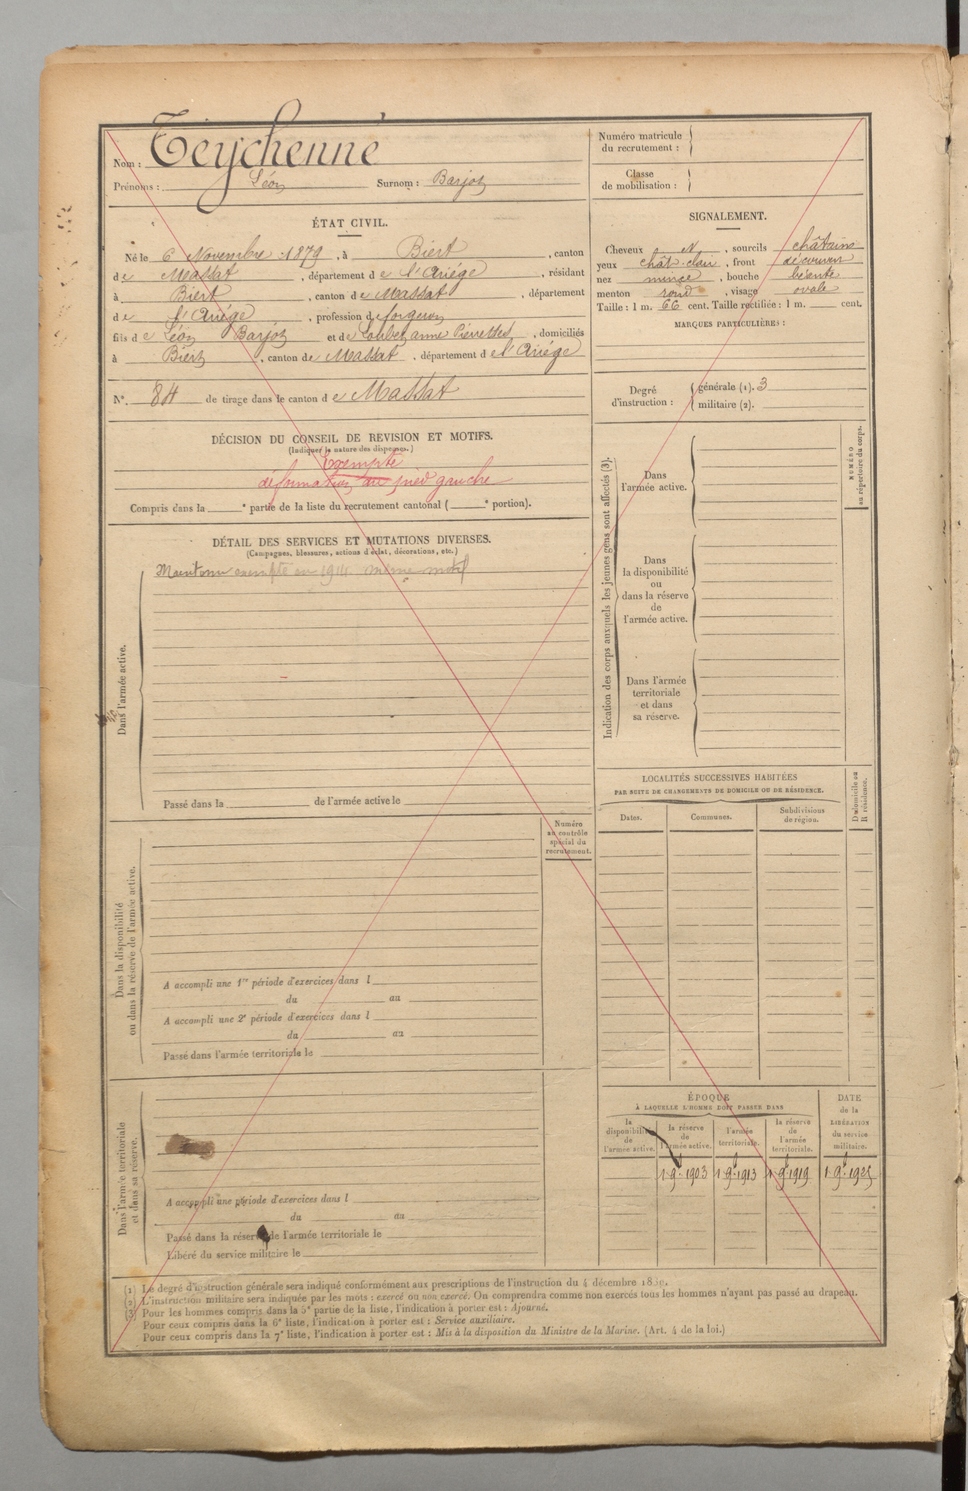 Nom : Teychenné
Prénoms : Léon Surnom : Barjou
ÉTAT CIVIL.
Né le 6 Novembre 1879, à Biert, canton
de Massat, département de l'Ariége, résidant
à Biert, canton de Massat, département
de l'Ariége, profession de forgeron
fils de Léon Barjou et de Loubet anne Pierrettes, domiciliés
à Biert, canton de Massat, département de l'Ariége
N°. 84 de tirage dans le canton de Massat
DÉCISION DU CONSEIL DE REVISION ET MOTIFS.
(Indiquer la nature des dispenses.)
Exempté
déformation au pied gauche
Compris dans la e partie de la liste du recrutement cantonal ( e portion).
DÉTAIL DES SERVICES ET MUTATIONS DIVERSES.
(Campagnes, blessures, actions d'éclat, décorations, etc.)
Maintenu exempté en 1914 même motif
Dans l'armée active.
Passé dans la de l'armée active le
Numéro
au contrôle
spécial du
recrutement.
Dans la disponibilité
ou dans la réserve de l'armée active.
A accompli une 1re période d'exercices dans l
du au
A accompli une 2e période d'exercices dans l
du au
Passé dans l'armée territoriale le
Dans l'armée territoriale
et dans sa réserve.
A accompli une période d'exercices dans l
du au
Passé dans la réserve de l'armée territoriale le
Libéré du service militaire le
Numéro matricule
du recrutement :
Classe
de mobilisation :
SIGNALEMENT.
Cheveux N, sourcils châtains
yeux chât-clair, front découvert
nez mince, bouche béante
menton rond, visage ovale
Taille : 1 m. 66 cent. Taille rectifiée : 1 m. cent.
MARQUES PARTICULIÈRES :
Degré
d'instruction :
générale (1). 3
militaire (2).
Indication des corps auxquels les jeunes gens sont affectés (3).
NUMÉRO
au répertoire du corps.
Dans
l'armée active.
Dans
la disponibilité
ou
dans la réserve
de
l'armée active.
Dans l'armée
territoriale
et dans
sa réserve.
LOCALITÉS SUCCESSIVES HABITÉES
PAR SUITE DE CHANGEMENTS DE DOMICILE OU DE RÉSIDENCE.
Dates. Communes. Subdivisions
de région.
D domicile ou
R résidence.
ÉPOQUE
À LAQUELLE L'HOMME DOIT PASSER DANS
la
disponibilité
de
l'armée active.
la réserve
de
l'armée active.
l'armée
territoriale.
la réserve
de
l'armée
territoriale.
DATE
de la
LIBÉRATION
du service
militaire.
1-9-1903 1-9-1913 1-9-1919 1-9-1925
(1) Le degré d'instruction générale sera indiqué conformément aux prescriptions de l'instruction du 4 décembre 1889.
(2) L'instruction militaire sera indiquée par les mots : exercé ou non exercé. On comprendra comme non exercés tous les hommes n'ayant pas passé au drapeau.
(3) Pour les hommes compris dans la 5e partie de la liste, l'indication à porter est : Ajourné.
Pour ceux compris dans la 6e liste, l'indication à porter est : Service auxiliaire.
Pour ceux compris dans la 7e liste, l'indication à porter est : Mis à la disposition du Ministre de la Marine. (Art. 4 de la loi.)